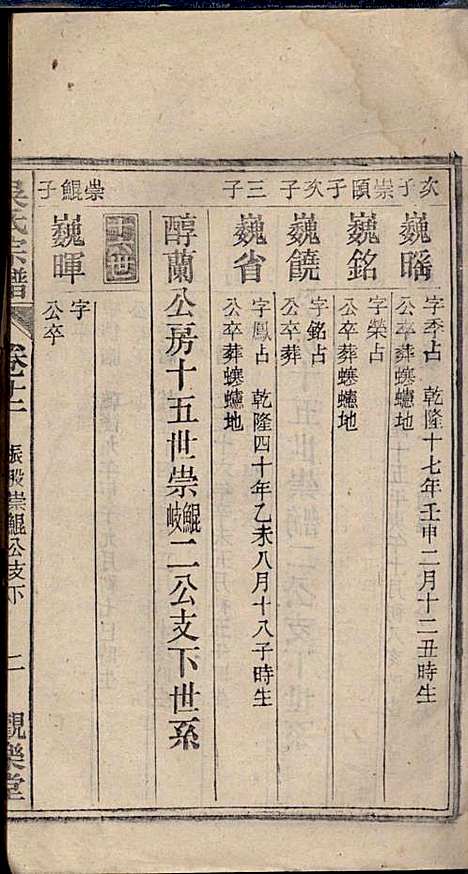 次子
巍暚
字季占 乾隆十七年壬申二月十二丑時生
公卒葬螃蟻地
崇頤子
巍銘
字榮占
公卒葬螃蟻地
次子
巍饒
字銘占
公卒葬
三子
巍省
字鳳占 乾隆四十年乙未八月十八子時生
公卒葬螃蟻地
醇蘭公房十五世崇鯤岐二公支下世系
十六世
崇鯤子
巍暉
字
公卒
吳氏宗譜
卷十二
振殷崇鯤公支下
二
觀樂堂